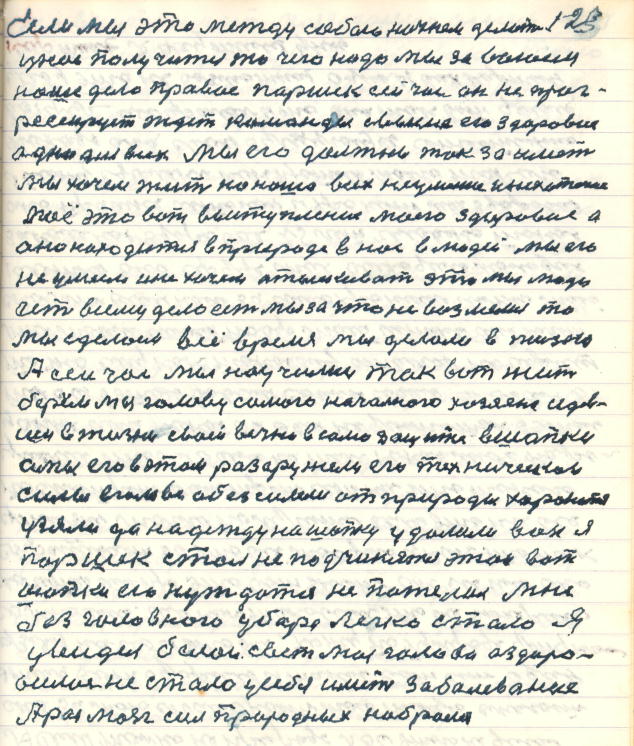 Если мы это между собою начнем делать 123
у нас получится то чего надо мы за воюем
наше дело правое паршек сейчас он не прог-
рессирует ждет команды свыше его здоровие
одно для всих мы его должны так занимать
мы хочем жить но наша всих неумение
моё это вот выступление моего здоровие а
оно находится в природе в нас в людей мы его
не умеем и не хочем отыскиват это мы люди
чет всему дело ест мы за что не возмемся то
мы сделаем всё время мы делали в жизни
А сейчас мы научились так вот жить
берём мы голову самого началного хозяена идев-
шея в жизни своей вечно в само защити в шапки
а мы его в этом разаружели его техническои
силы голова обезсилели от природы
узяли да надежду на шапку удалили вон я
паршек стал не подчинятся этои вот
шапки его нуждатся не потерял мне
без головного убаре легко стало Я
увидел белой свет моя голова аздаро-
вилоя не стало у себя имет заболевание
А раз мозг сил природных набрала